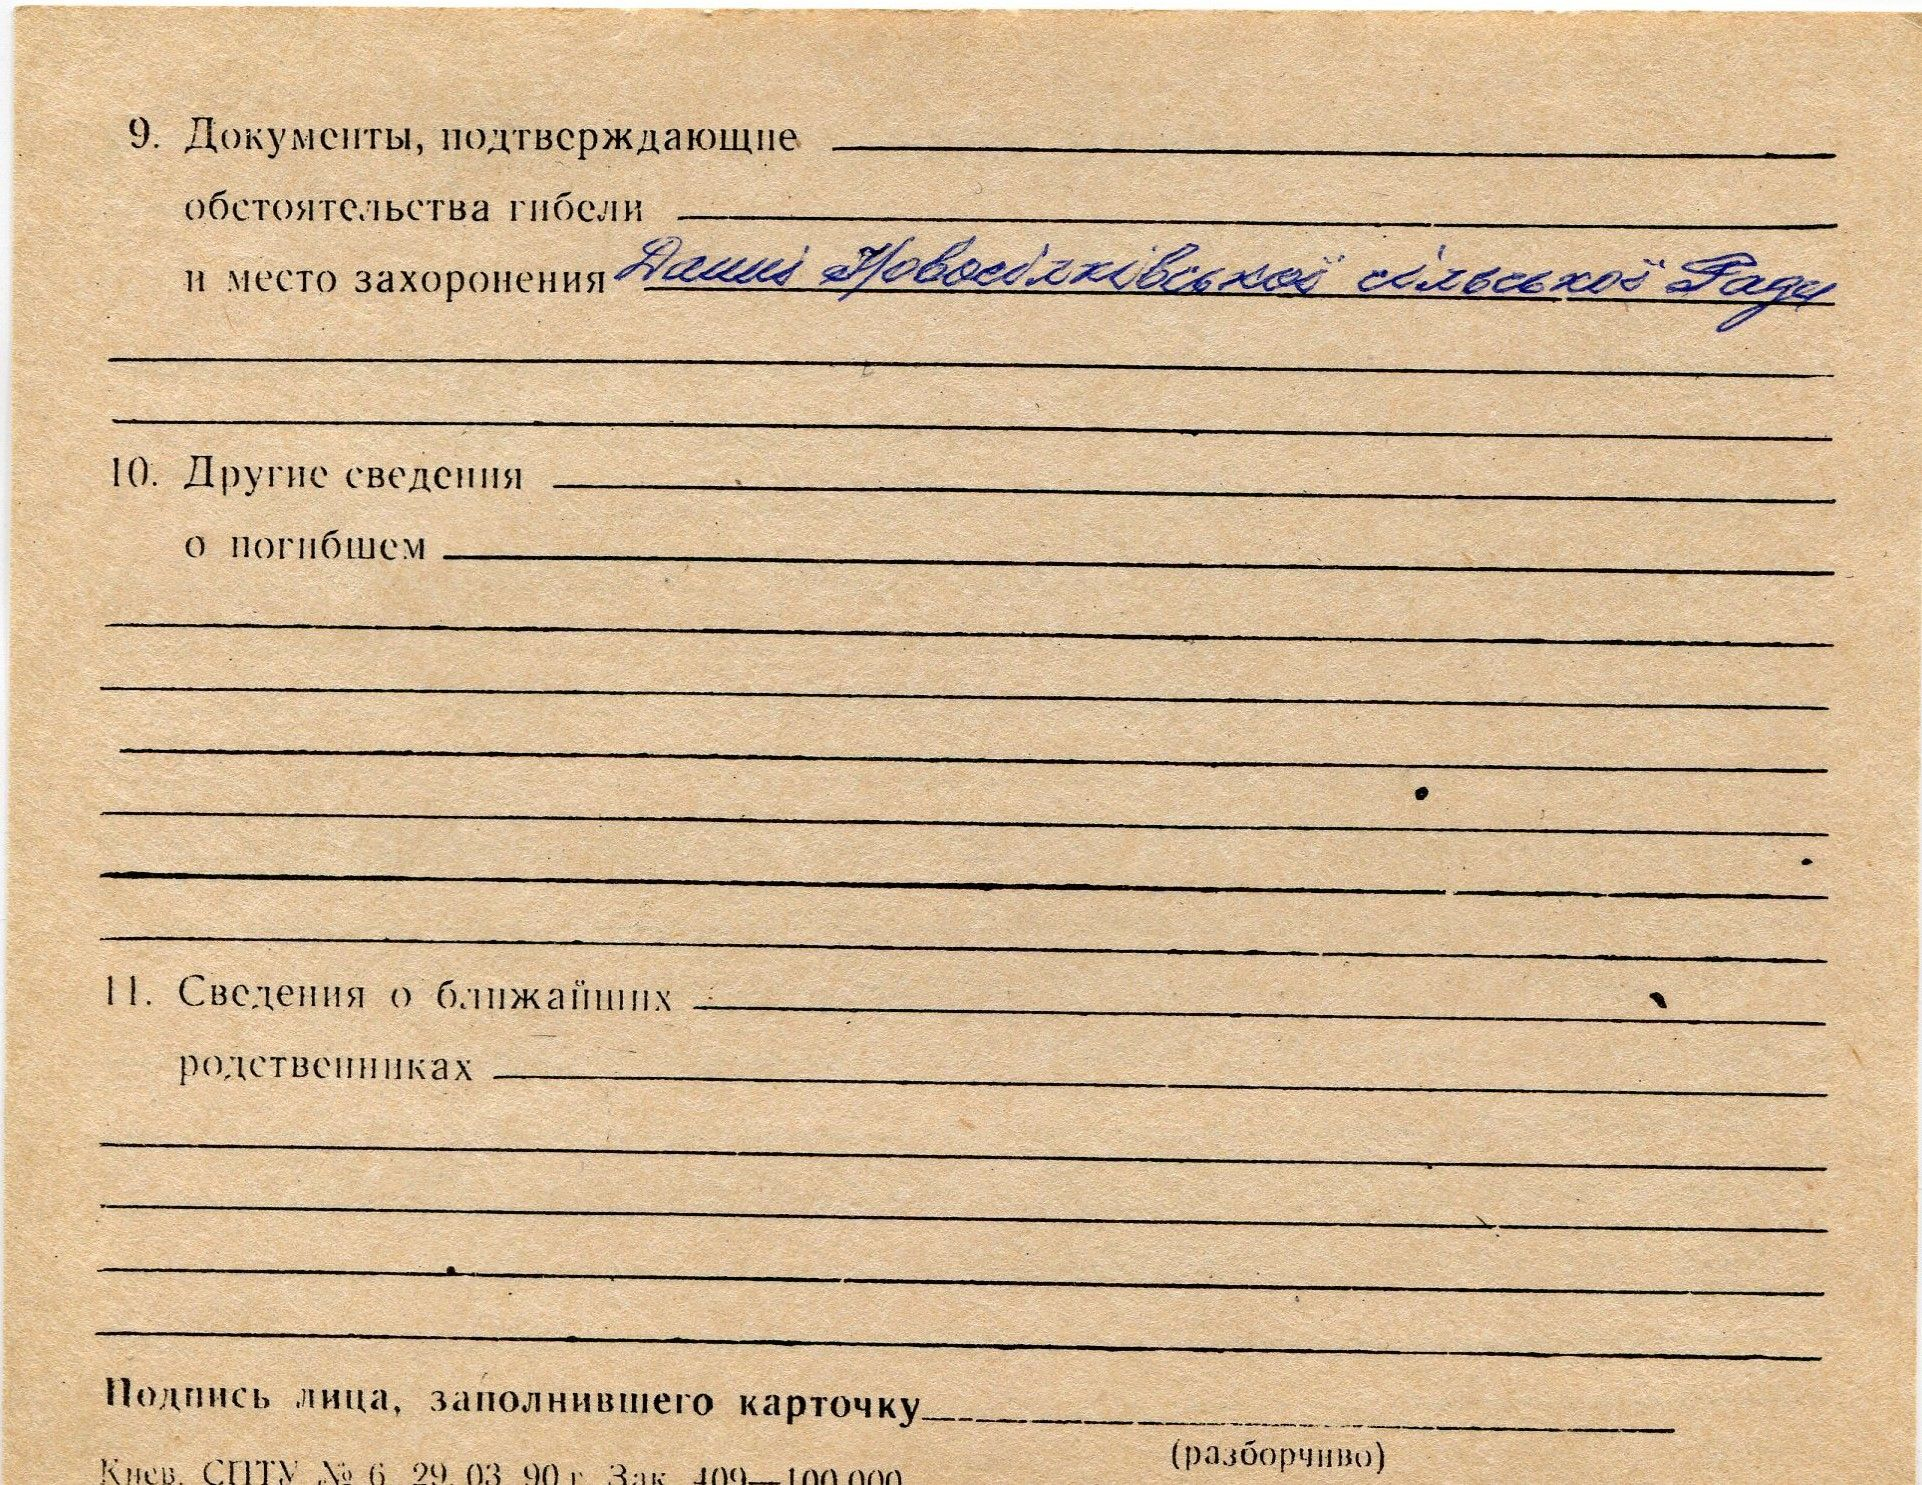 9. Документы, подтверждающие
обстоятельства гибели
и место захоронения Данні Новосілківської сільської Ради
10. Другие сведения
о погибшем
11. Сведения о ближайших
родственниках
Подпись лица, заполнившего карточку
(разборчиво)
Киев, СПТУ № 6 29. 03. 90 г. Зак. 409—100.000